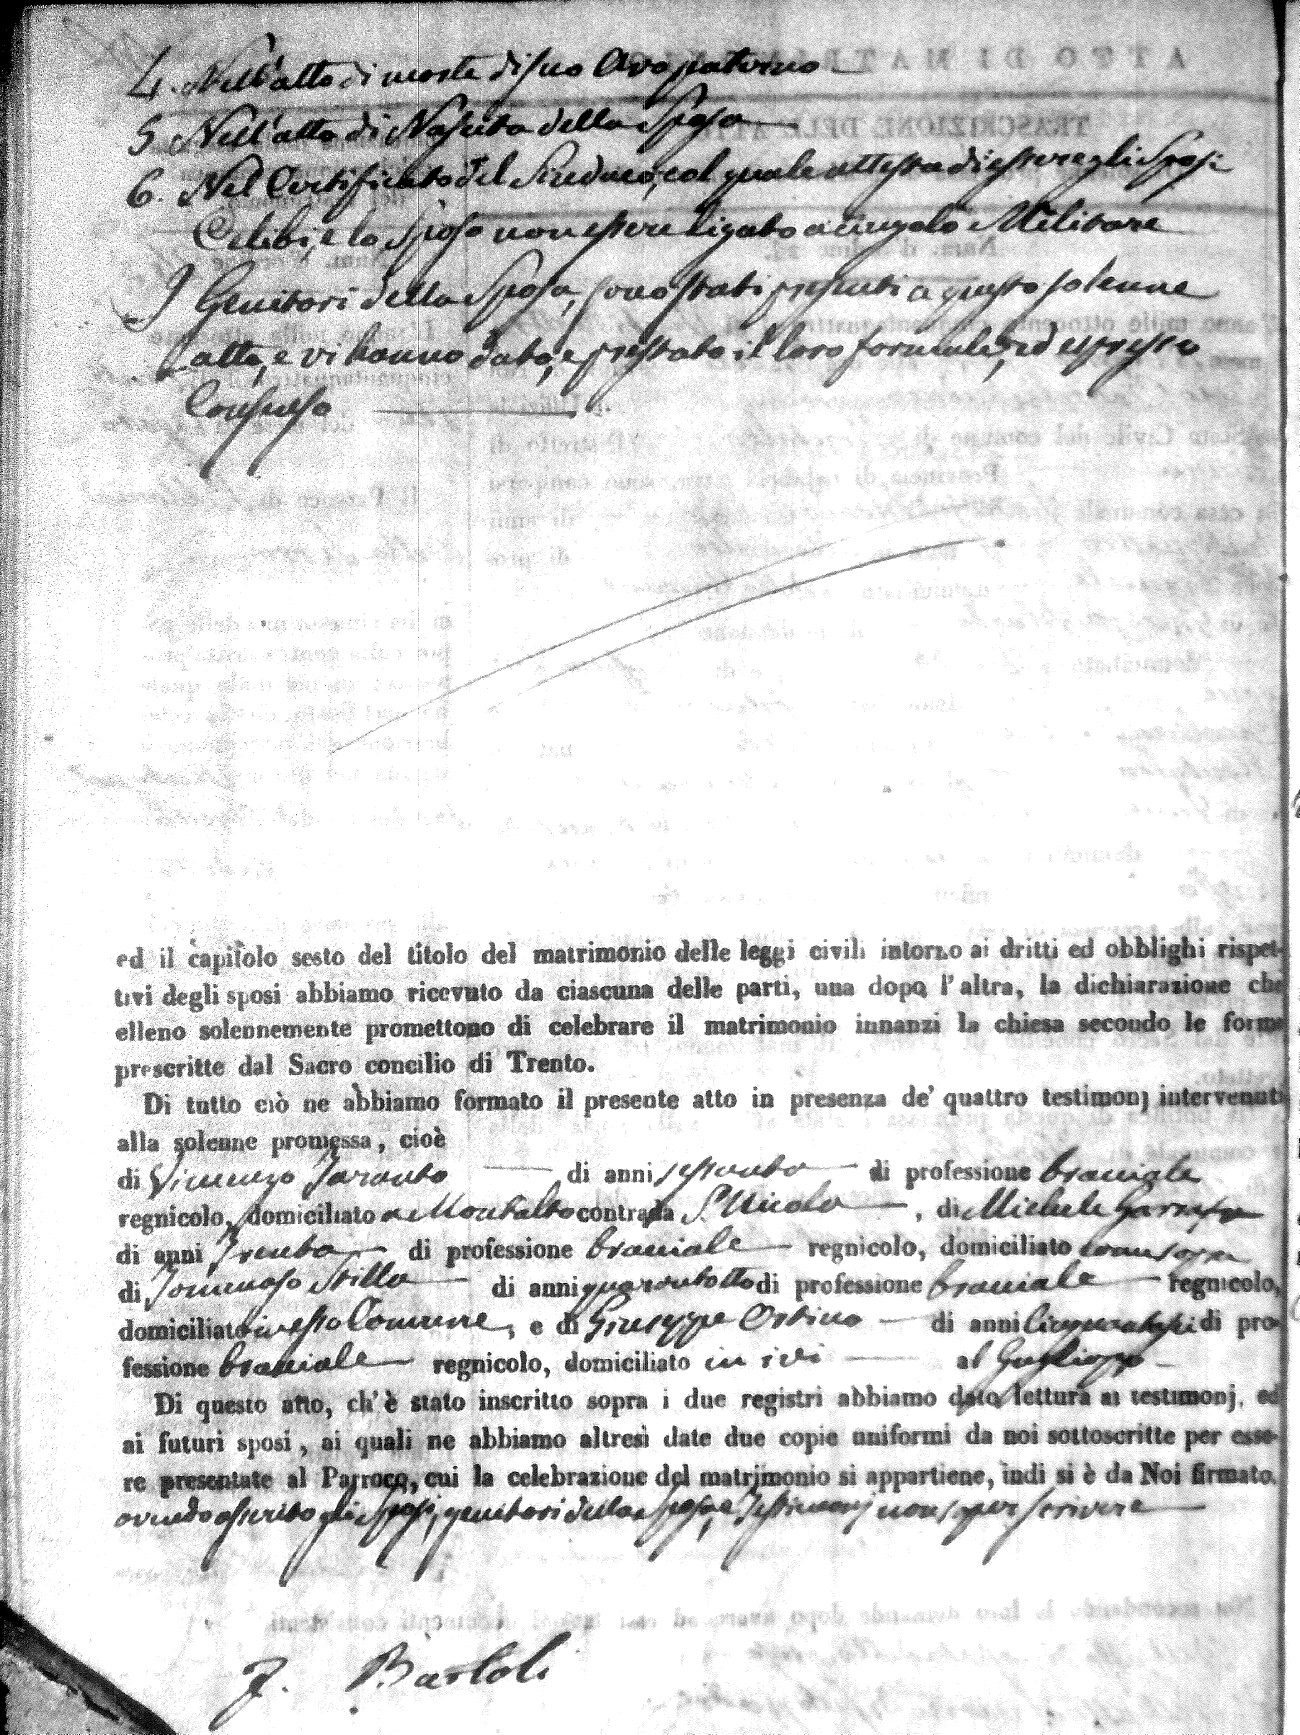 4. Nell'atto di morte di suo Avo paterno
5 Nell'atto di Nascita della Sposa
6. Nel Certificato del Sindaco, col quale attesta di essere gli Sposi
Celibi, e lo Sposo non essere ligato a cingolo Militare
I Genitori della Sposa, sono stati presenti a questo solenne
atto, e vi hanno dato, e prestato il loro formale, ed espresso
Consenso
ed il capitolo sesto del titolo del matrimonio delle leggi civili intorno ai dritti ed obblighi rispet-
tivi degli sposi abbiamo ricevuto da ciascuna delle parti, una dopo l'altra, la dichiarazione che
elleno solennemente promettono di celebrare il matrimonio innanzi la chiesa secondo le forme
prescritte dal Sacro concilio di Trento.
Di tutto ciò ne abbiamo formato il presente atto in presenza de' quattro testimonj intervenuti
alla solenne promessa, cioè
di Vincenzo Taranto di anni sessanta di professione braciale
regnicolo, domiciliato a Montalto contrada S. Nicola, di Michele
di anni Trenta di professione braciale regnicolo, domiciliato come sopra
di Tommaso Stilla di anni quarantotto di professione braciale regnicolo,
domiciliato in esso Comune, e di Giuseppe Ortino di anni di pro-
fessione braciale regnicolo, domiciliato in ivi al
Di questo atto, ch'è stato inscritto sopra i due registri abbiamo dato lettura ai testimonj, ed
ai futuri sposi, ai quali ne abbiamo altresì date due copie uniformi da noi sottoscritte per esse-
re presentate al Parroco, cui la celebrazione del matrimonio si appartiene, indi si è da Noi firmato,
avendo asserito gli Sposi, genitori della Sposa, e Testimonj non saper scrivere
F. Bartoli